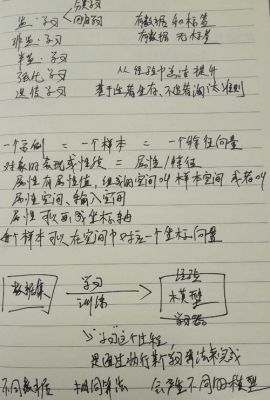 分类学习
监督学习 回归学习 有数据和标签
非监督学习 有数据 无标签
半监督学习
强化学习 从经验中总结提升
遗传学习 基于适者生存,不适者淘汰准则
一个示例 = 一个样本 = 一个特征向量
对象的表现或性质 = 属性/特征
属性有属性值,组成的空间叫 样本空间 或者叫
属性空间、输入空间
属性 可以画成坐标轴
每个样本可以在空间中对应一个坐标向量
数据集 学习 训练 模型 学习器
学习这个过程,
是通过执行某个学习算法来完成
不同数据 相同算法 会产生不同的模型